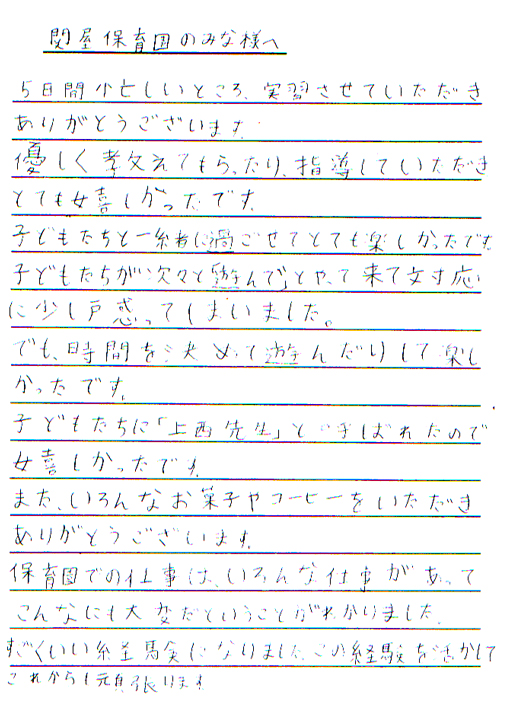 関屋保育園のみな様へ
5日間少忙しいところ、実習させていただき
ありがとうございます。
優しく教えてもらったり、指導していただき
とても嬉しかったです。
子どもたちと一緒に過ごせてとても楽しかったです。
子どもたちが次々と「遊んで」とやって来て対応
に少し戸惑ってしまいました。
でも、時間を決めて遊んだりして楽し
かったです。
子どもたちに「上西先生」と呼ばれたので
嬉しかったです。
また、いろんなお菓子やコーヒーをいただき
ありがとうございます。
保育園での仕事は、いろんな仕事があって
こんなにも大変だということがわかりました。
すごくいい経験になりました。この経験を活かして
これからも頑張ります